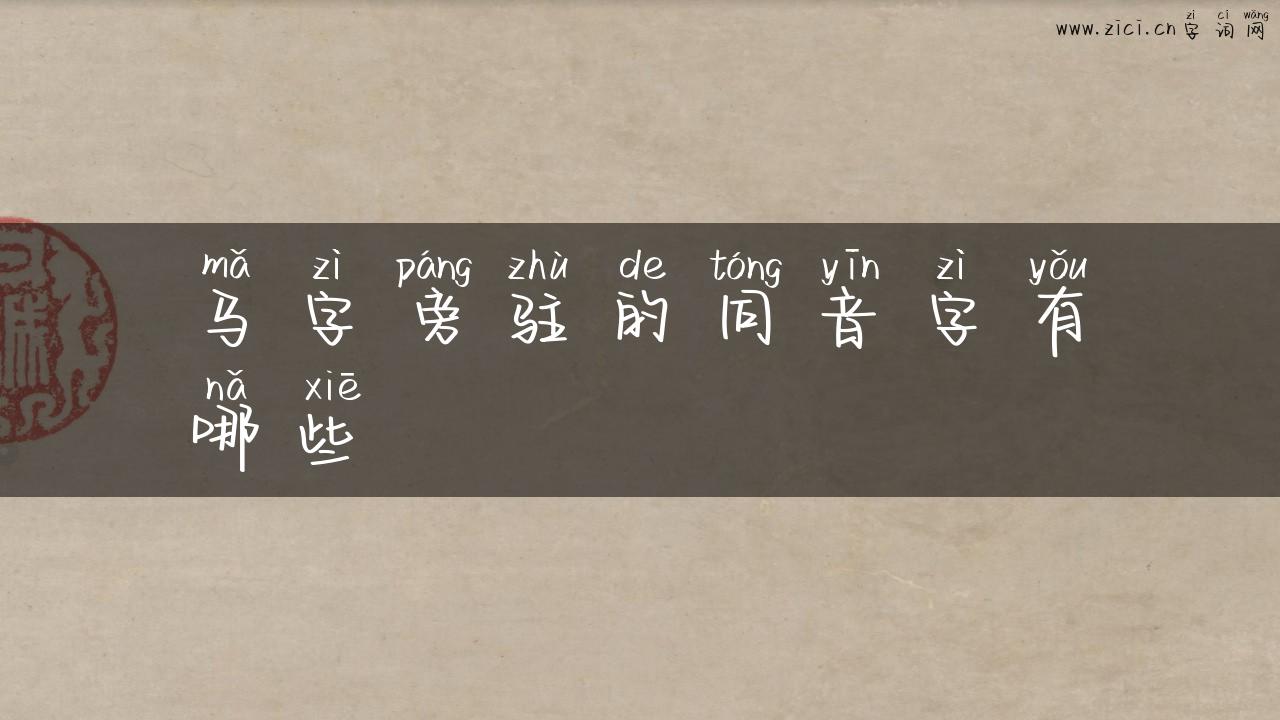 zì cí wǎng
www.zici.cn字词网
mǎ zì páng zhù de tóng yīn zì yǒu
马字旁驻的同音字有
nǎ xiē
哪些